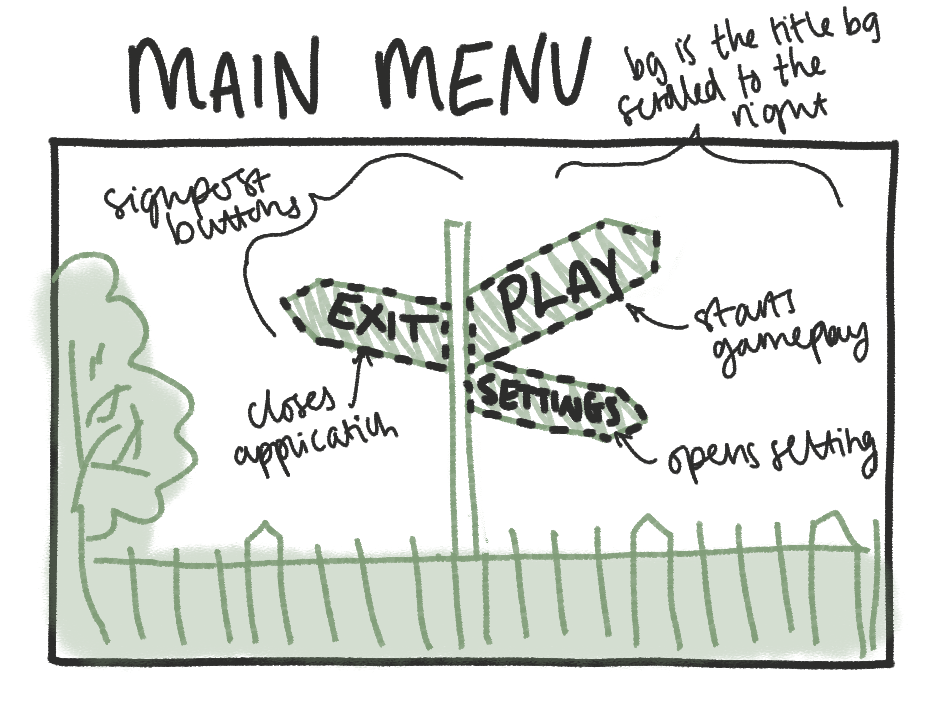 MAIN MENU
bg is the title bg
scrolled to the
right
signpost
buttons
PLAY
EXIT
SETTINGS
starts
gameplay
closes
application
opens setting